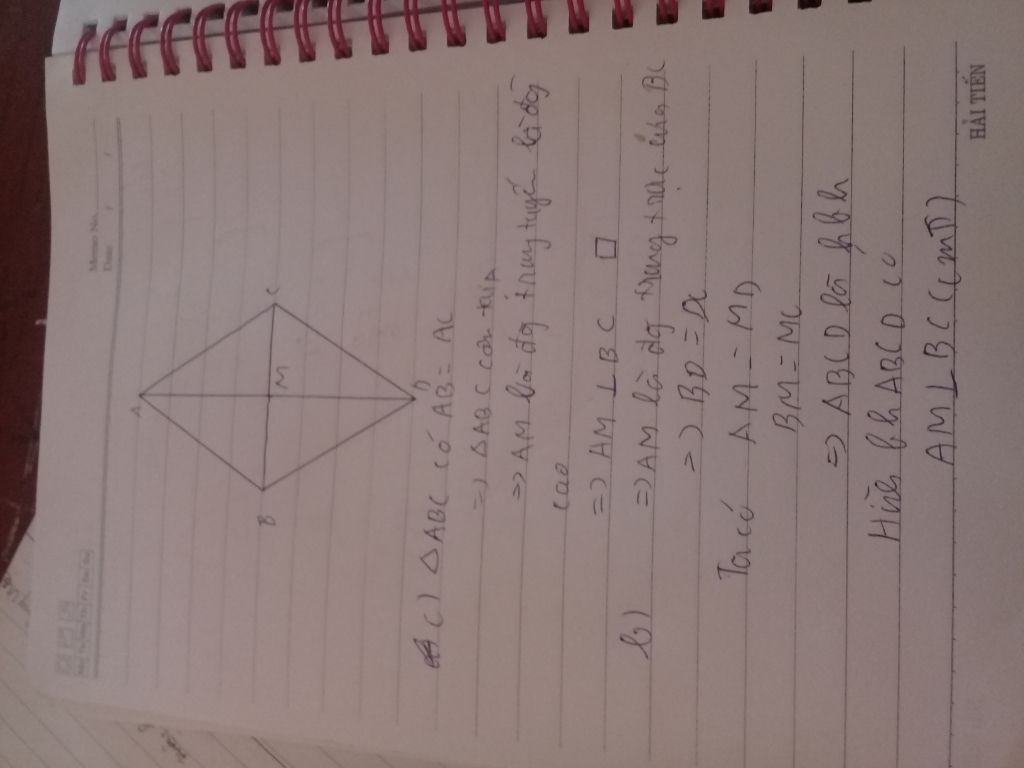 Memo No.
Date / /
A
B
M
C
D
c) △ABC có AB = AC
=> △ABC cân tại A
=> AM là đg trung tuyến là đg
cao
=> AM ⊥ BC □
b) => AM là đg trung trực của BC
=> BD = DC
Ta có AM = MD
BM = MC
=> ABCD là hbh
Hình bh ABCD có
AM ⊥ BC (cmT)
HẢI TIẾN